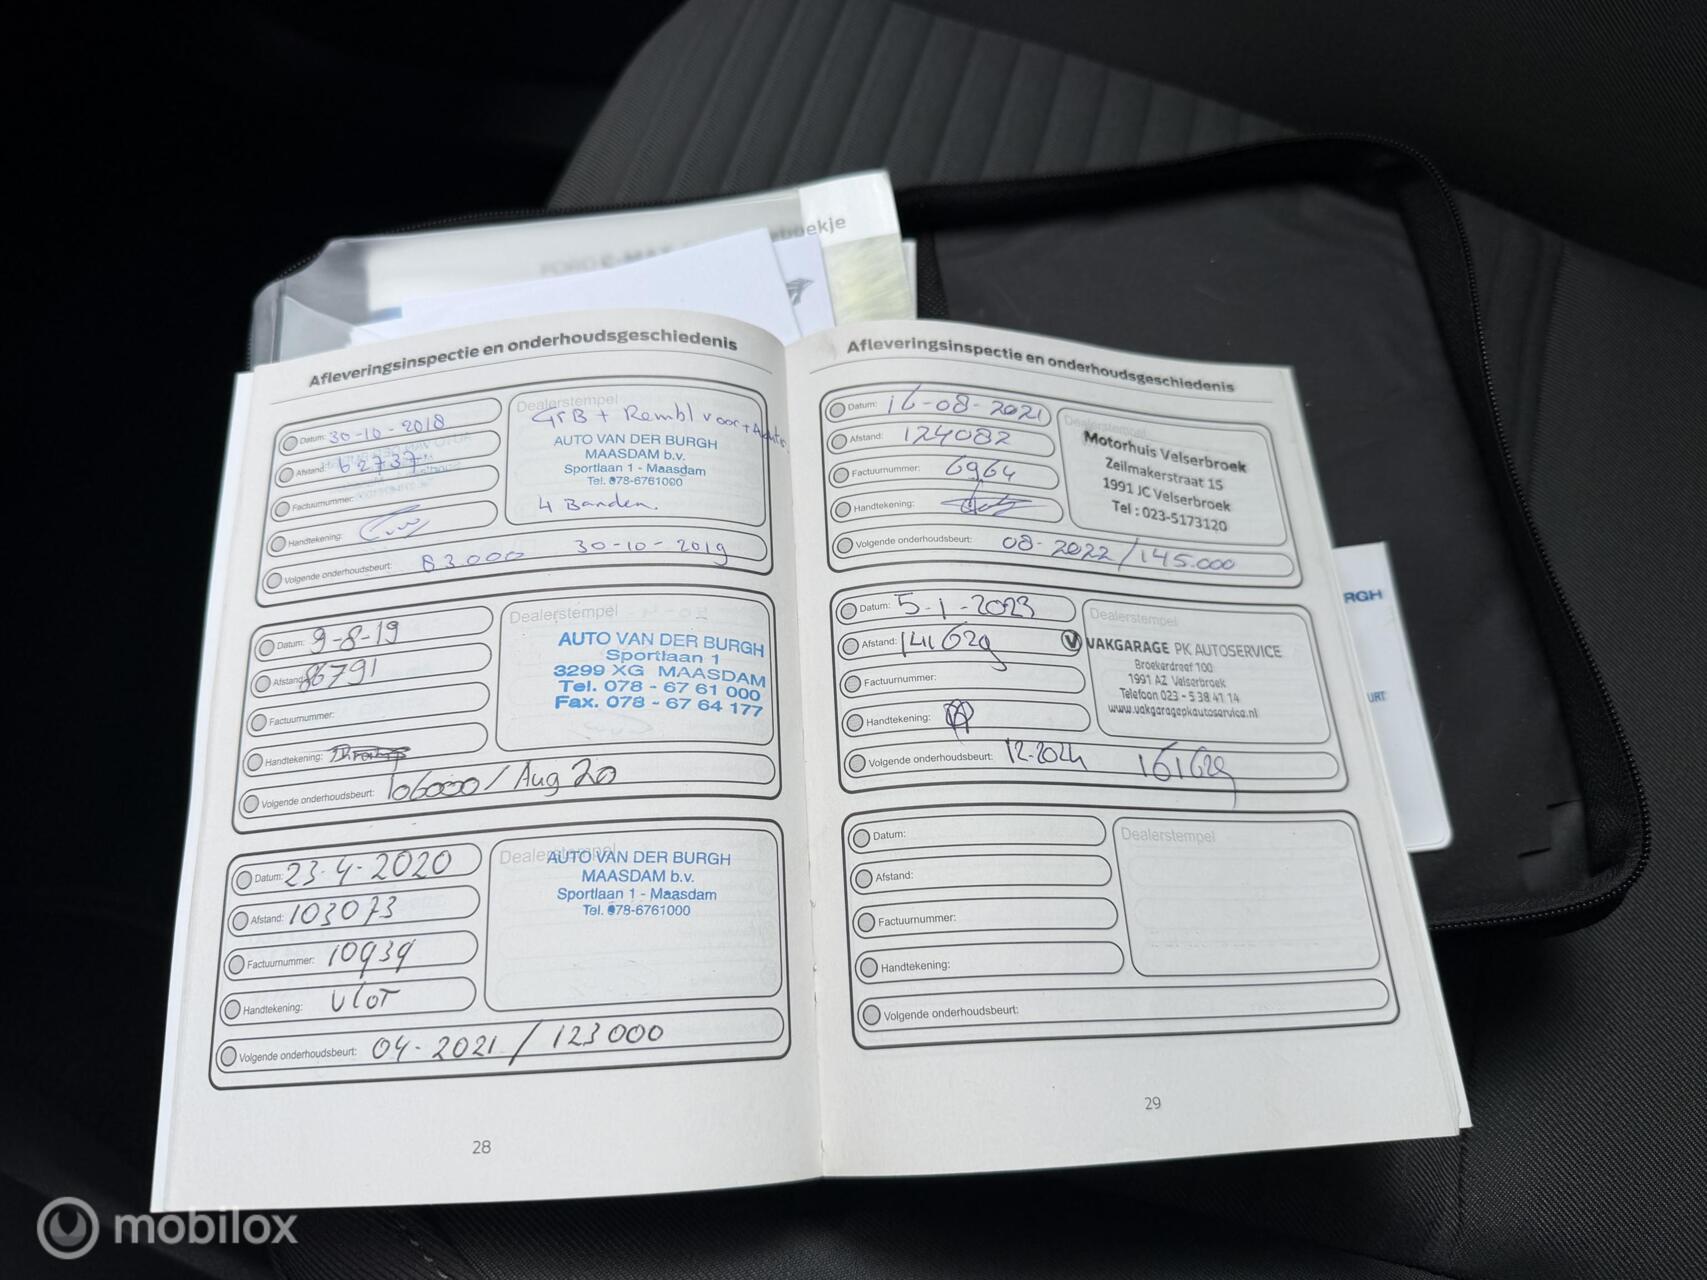 boekje
FORD C-MAX
Afleveringsinspectie en onderhoudsgeschiedenis
Datum: 30-10-2018
Afstand: 62737
Factuurnummer:
Handtekening:
Volgende onderhoudsbeurt: 83.000 30-10-2019
Dealerstempel
GrB + Rembl voor + Achter
AUTO VAN DER BURGH
MAASDAM b.v.
Sportlaan 1 - Maasdam
Tel. 078-6761000
4 Banden.
Datum: 9-8-19
Afstand: 86791
Factuurnummer:
Handtekening:
Volgende onderhoudsbeurt: 106000 / Aug 20
Dealerstempel
AUTO VAN DER BURGH
Sportlaan 1
3299 XG MAASDAM
Tel. 078 - 67 61 000
Fax. 078 - 67 64 177
Datum: 23-4-2020
Afstand: 103073
Factuurnummer: 10939
Handtekening: Vlot
Volgende onderhoudsbeurt: 04-2021 / 123000
Dealerstempel
AUTO VAN DER BURGH
MAASDAM b.v.
Sportlaan 1 - Maasdam
Tel. 078-6761000
28
Afleveringsinspectie en onderhoudsgeschiedenis
Datum: 16-08-2021
Afstand: 124082
Factuurnummer: 6964
Handtekening:
Volgende onderhoudsbeurt: 08-2022 / 145.000
Dealerstempel
Motorhuis Velserbroek
Zeilmakerstraat 15
1991 JC Velserbroek
Tel : 023-5173120
Datum: 5-1-2023
Afstand: 141629
Factuurnummer:
Handtekening:
Volgende onderhoudsbeurt: 12-2024 161629
Dealerstempel
VAKGARAGE PK AUTOSERVICE
Broekerdreef 100
1991 AZ Velserbroek
Telefoon 023 - 5 38 41 14
www.vakgaragepkautoservice.nl
Datum:
Afstand:
Factuurnummer:
Handtekening:
Volgende onderhoudsbeurt:
Dealerstempel
29
RGH
URT
mobilox